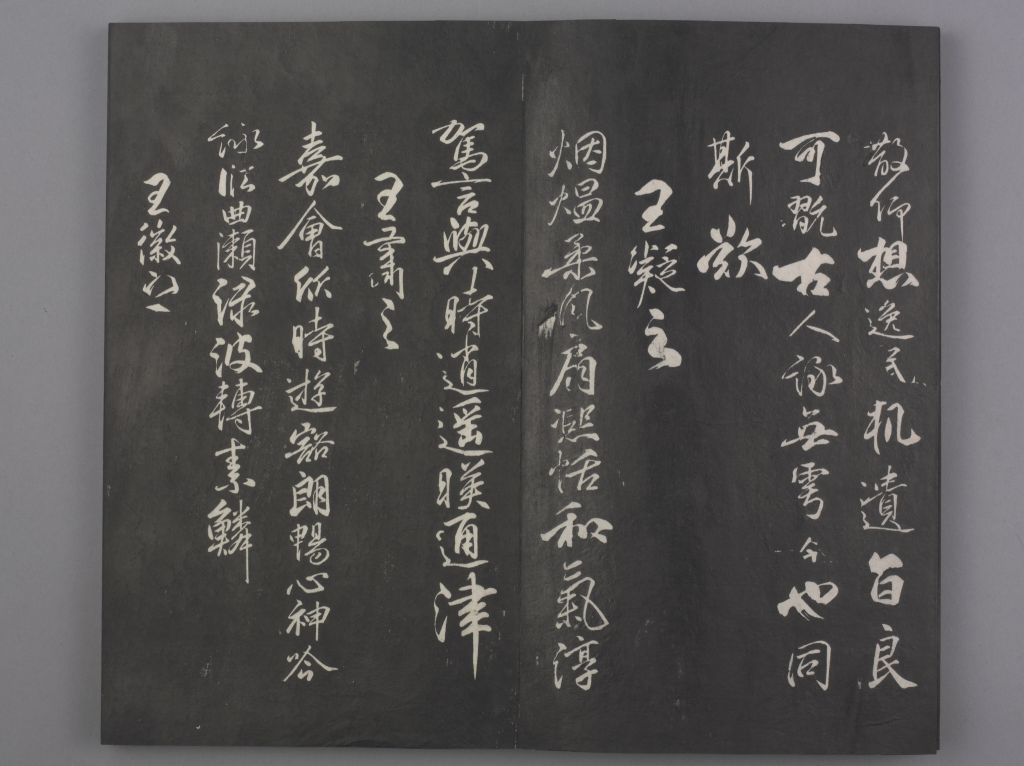 散仰想逸民軌遺音良
可翫古人詠無雩今也同
斯歎
王凝之
烟熅柔風扇熙恬和氣淳
駕言興時逍遥暎通津
王肅之
嘉會欣時遊豁朗暢心神吟
詠㳂曲瀨渌波轉素鱗
王徽之